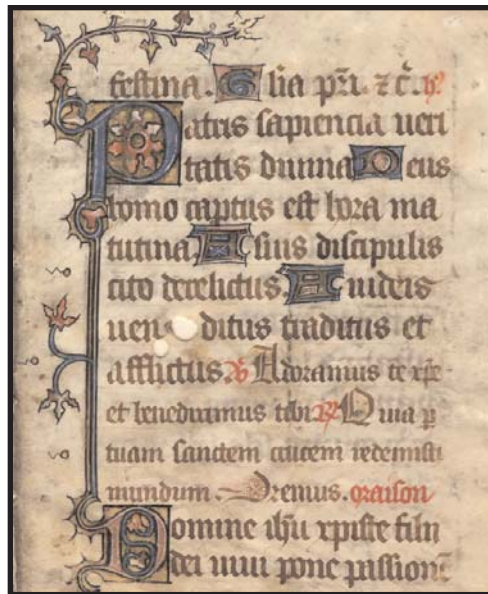 festina. Glia pri. ⁊ c̄. ỹ.
Patris sapiencia ueri
tatis diuina Deus
homo captus est hora ma
tutina A suis discipulis
cito derelictus A iudeis
uen ditus traditus et
afflictus. Adoramus te xpe
et benediximus tibi R̃ Quia p
tuam sanctem crucem redemisti
mundum. Oremus. oraison
Domine ihu xpiste filii
dei uiui pone passionē